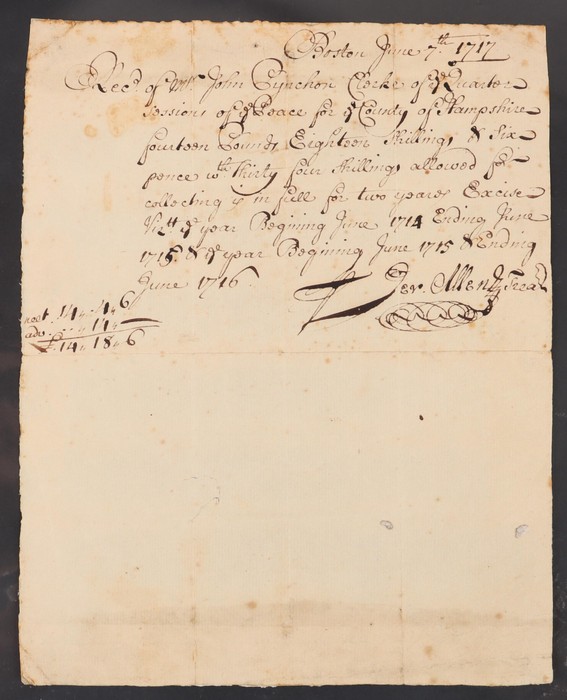 Boston June 7.th 1717
Rec.d of Mr. John Pynchon Clerke of ye Quarter
Sessions of ye Peace for ye County of Hampshire
fourteen Pounds Eighteen Shillings & Six
pence wth. Thirty four Shillings allowed for
collecting is in full for two years Excise
Vizt. ye year Begining June 1714 Ending June
1715. & ye year Begining June 1715 & Ending
June 1716.
Jer. Allen Trear.
14 " 4 " 6
" 14 " —
£ 14 " 18 " 6